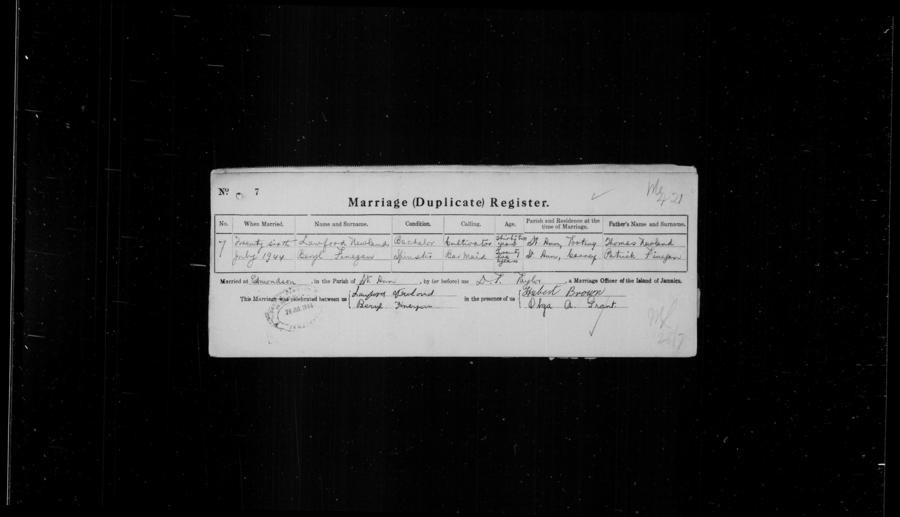 No. 7
Marriage (Duplicate) Register.
No. When Married. Name and Surname. Condition. Calling. Age. Parish and Residence at the time of Marriage. Father's Name and Surname.
7 Twenty sixth Lawford Newland Bachelor Cultivator years St. Ann, Tooting Thomas Newland
July 1944 Beryl Finegan Spinster Bar Maid Twenty years St. Ann, Patrick Finegan
Married at Edmondson, in the Parish of St. Ann, by (or before) me D. T. Taylor, a Marriage Officer of the Island of Jamaica.
This Marriage was celebrated between us Lawford Newland in the presence of us Hubert Brown
Beryl Finegan Olga A. Grant